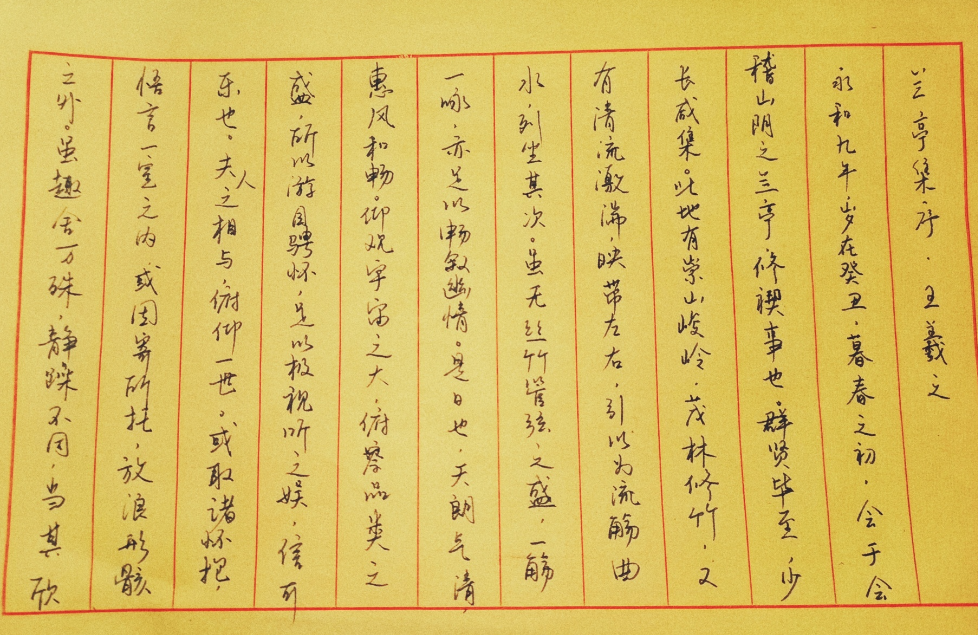 兰亭集序.王羲之
永和九年,岁在癸丑,暮春之初,会于会
稽山阴之兰亭,修禊事也。群贤毕至,少
长咸集。此地有崇山峻岭,茂林修竹,又
有清流激湍,映带左右,引以为流觞曲
水,列坐其次。虽无丝竹管弦之盛,一觞
一咏,亦足以畅叙幽情。是日也,天朗气清,
惠风和畅。仰观宇宙之大,俯察品类之
盛,所以游目骋怀,足以极视听之娱,信可
乐也。夫人之相与,俯仰一世。或取诸怀抱,
悟言一室之内,或因寄所托,放浪形骸
之外。虽趣舍万殊,静躁不同,当其欣